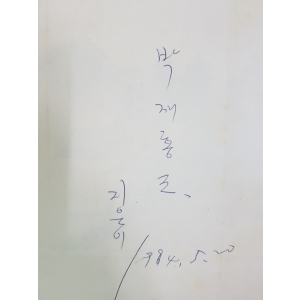 박재홍 兄
지은이
1984. 5. 20